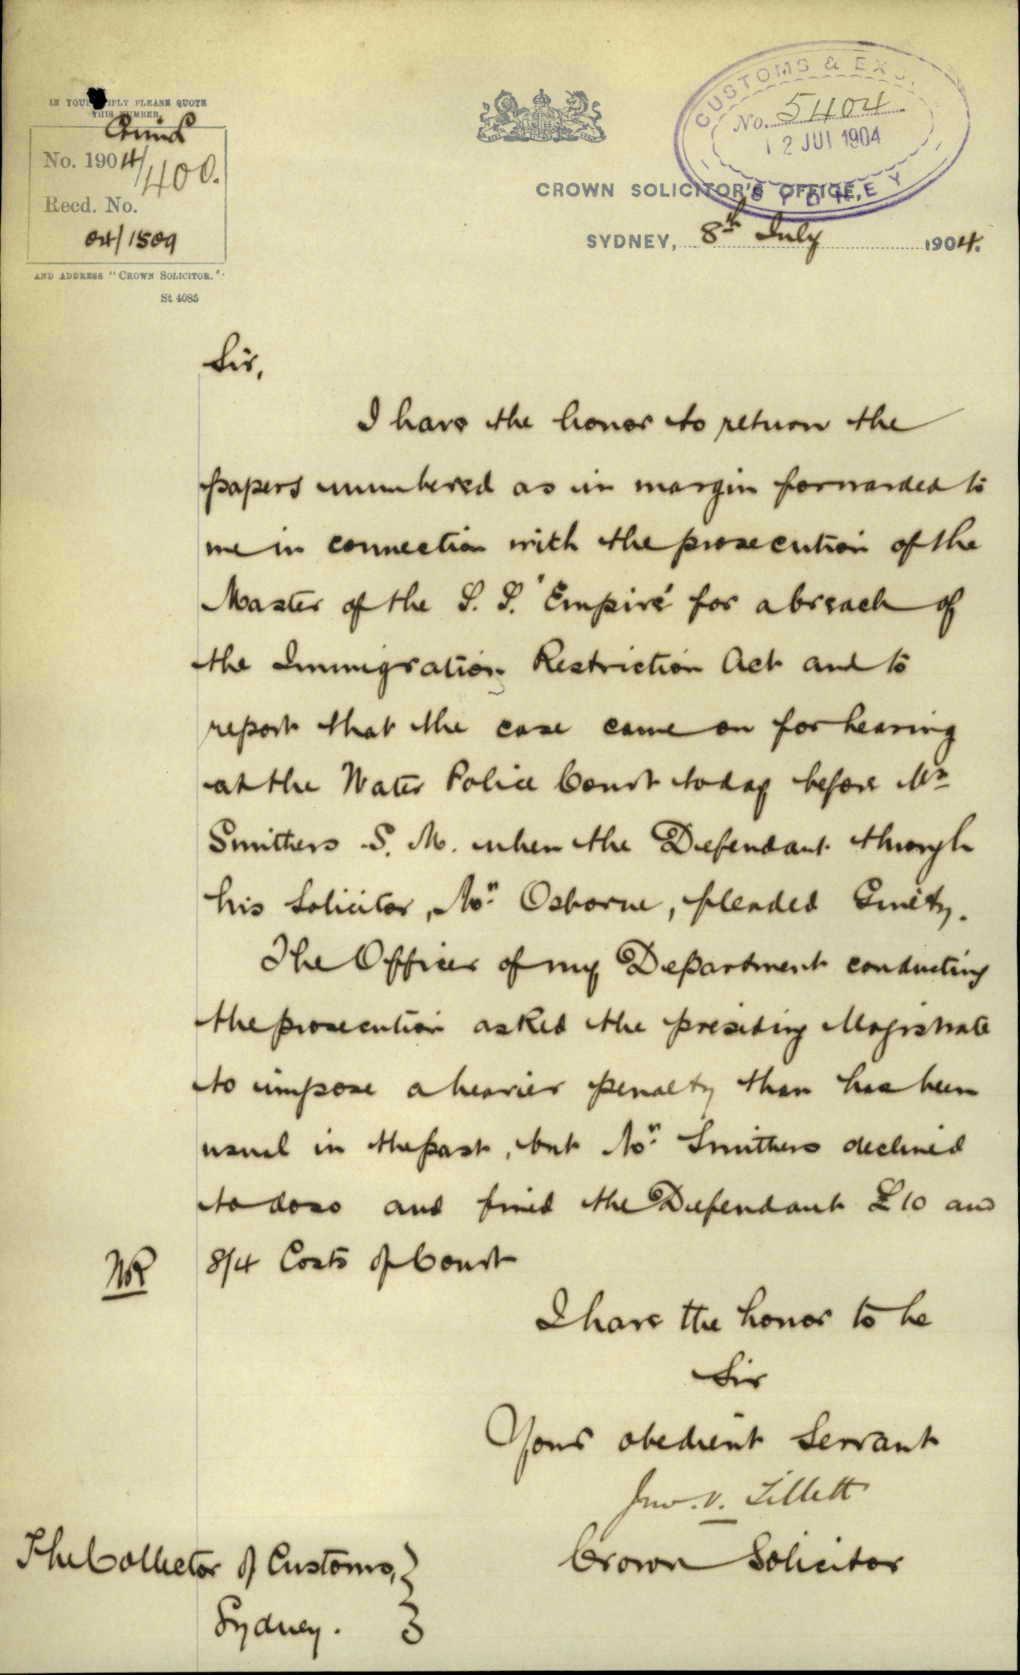 IN YOUR REPLY PLEASE QUOTE
THIS NUMBER.
Crim L
No. 1904/400.
Recd. No.
04/1509
AND ADDRESS "CROWN SOLICITOR."
St 4085
CUSTOMS & EXCISE
No. 5404
12 JUL 1904
SYDNEY
CROWN SOLICITOR'S OFFICE,
SYDNEY, 8th July 1904.
Sir,
I have the honor to return the
papers numbered as in margin forwarded to
me in connection with the prosecution of the
Master of the S. S. 'Empire' for a breach of
the Immigration Restriction Act and to
report that the case came on for hearing
at the Water Police Court today before Mr
Smithers S. M. when the Defendant through
his Solicitor, Mr. Osborne, pleaded Guilty.
The Officer of my Department conducting
the prosecution asked the presiding Magistrate
to impose a heavier penalty than has been
usual in the past, but Mr. Smithers declined
to do so and fined the Defendant £10 and
8/4 Costs of Court
I have the honor to be
Sir
Your obedient Servant
Jno. V. Tillett
Crown Solicitor
The Collector of Customs,
Sydney.